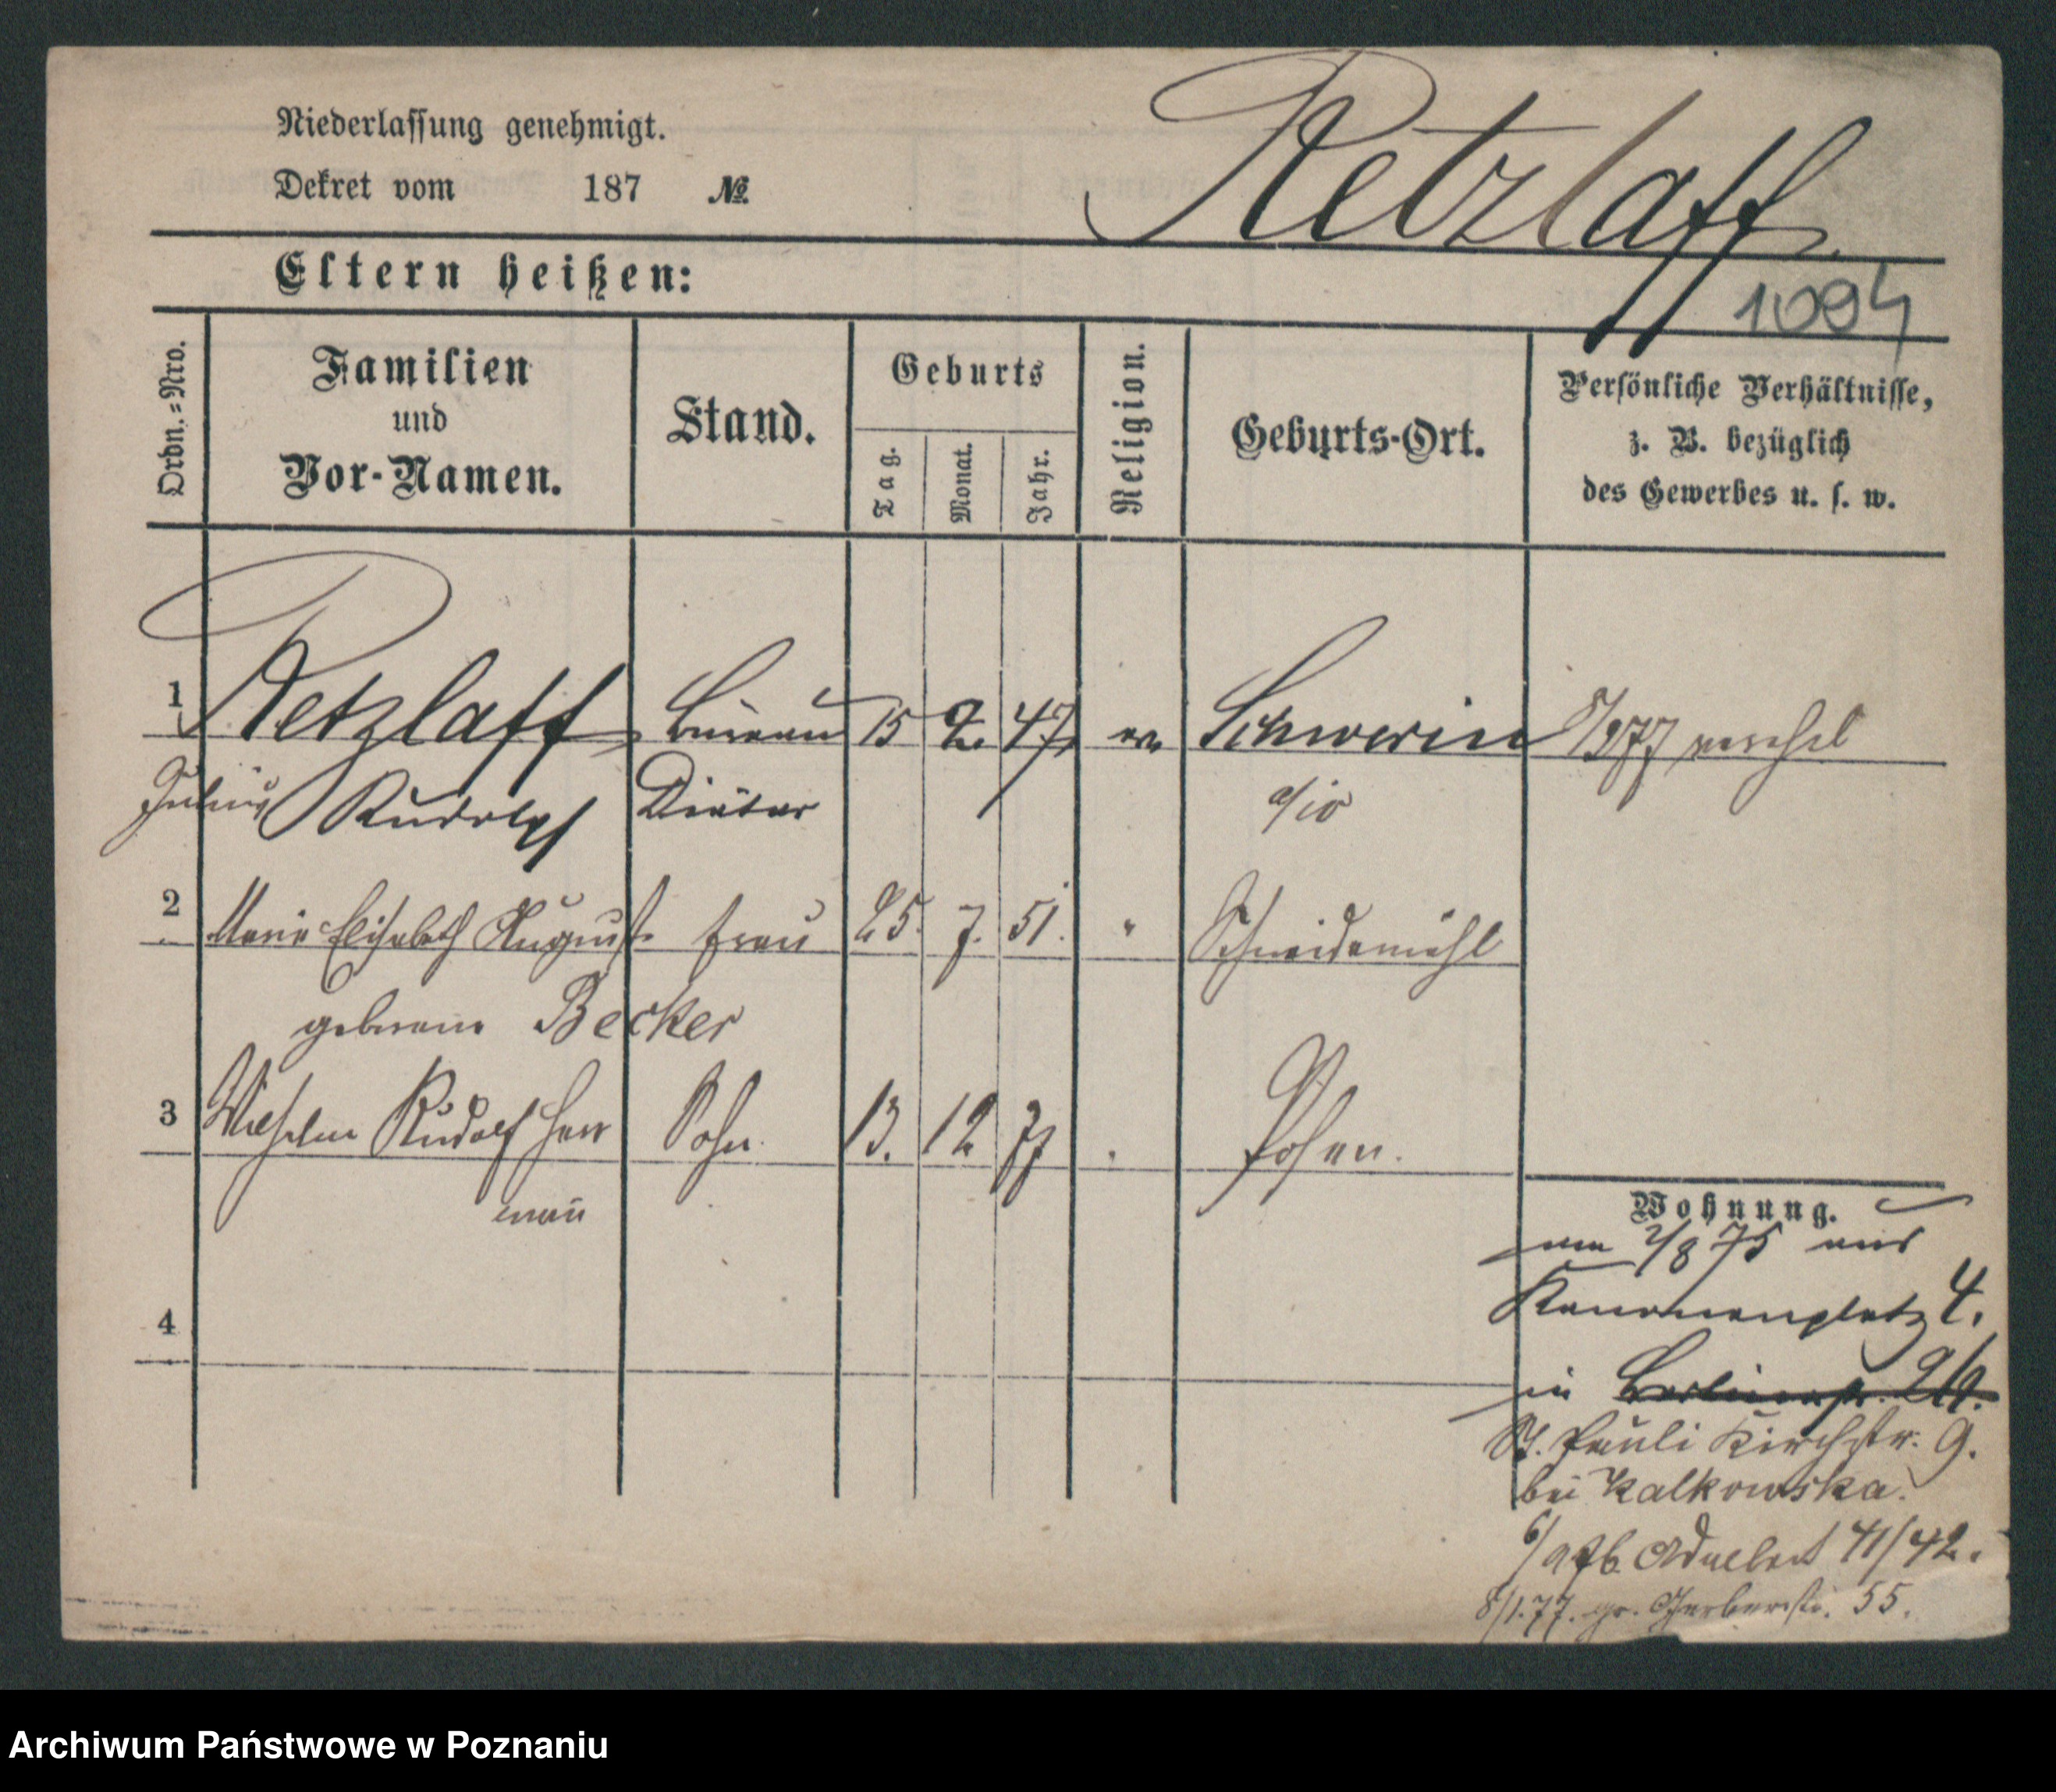 Niederlassung genehmigt.
Dekret vom 187 №
Retzlaff.
Eltern heißen:
1094
Ordn.-Nro.
Familien
und
Vor-Namen.
Stand.
Geburts
Tag.
Monat.
Jahr.
Religion.
Geburts-Ort.
Persönliche Verhältnisse,
z. B. bezüglich
des Gewerbes u. s. w.
1 Retzlaff Büreau 15 2. 47. ev Schwerin
Julius Rudolph Diätar
2 Marie Elisabeth August Frau 25. 7. 51. " Schneidemühl
geborene Becker
3 Wilhelm Rudolf Herr Sohn. 13. 12 77 " Posen.
mann
4
Wohnung.
am 2/8 75 aus
Kanonenplatz 4.
in Berlinerstr.
St. Pauli Kirchstr. 9.
bei Kalkowska.
6/9 76. Adalbert 41/42.
8/1.77. gr. Gerberstr. 55.
Archiwum Państwowe w Poznaniu